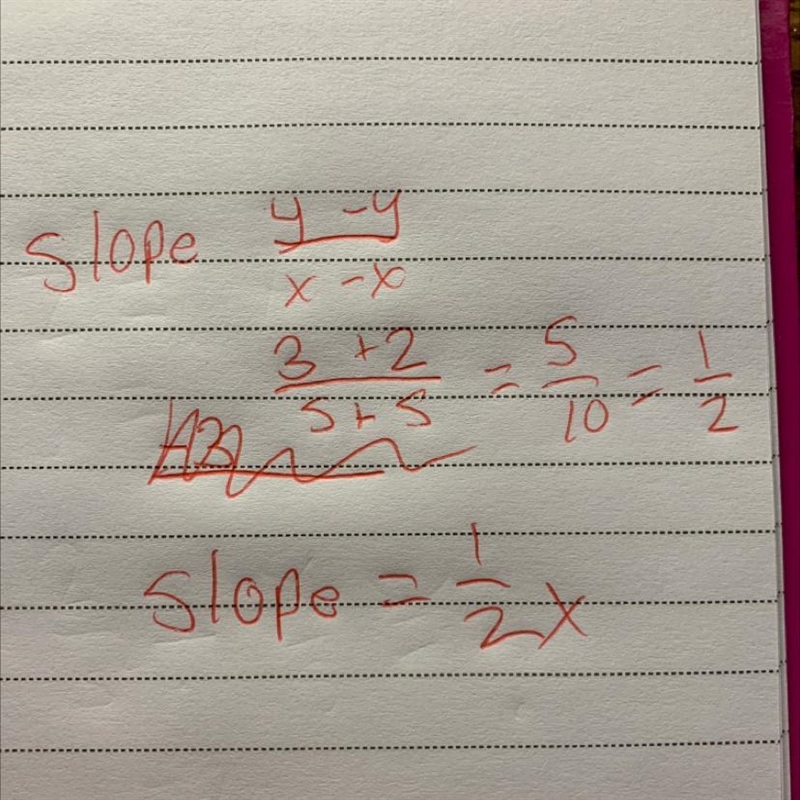 slope y - y / x - x
3 + 2 / 5 + 5 = 5/10 = 1/2
slope = 1/2 x